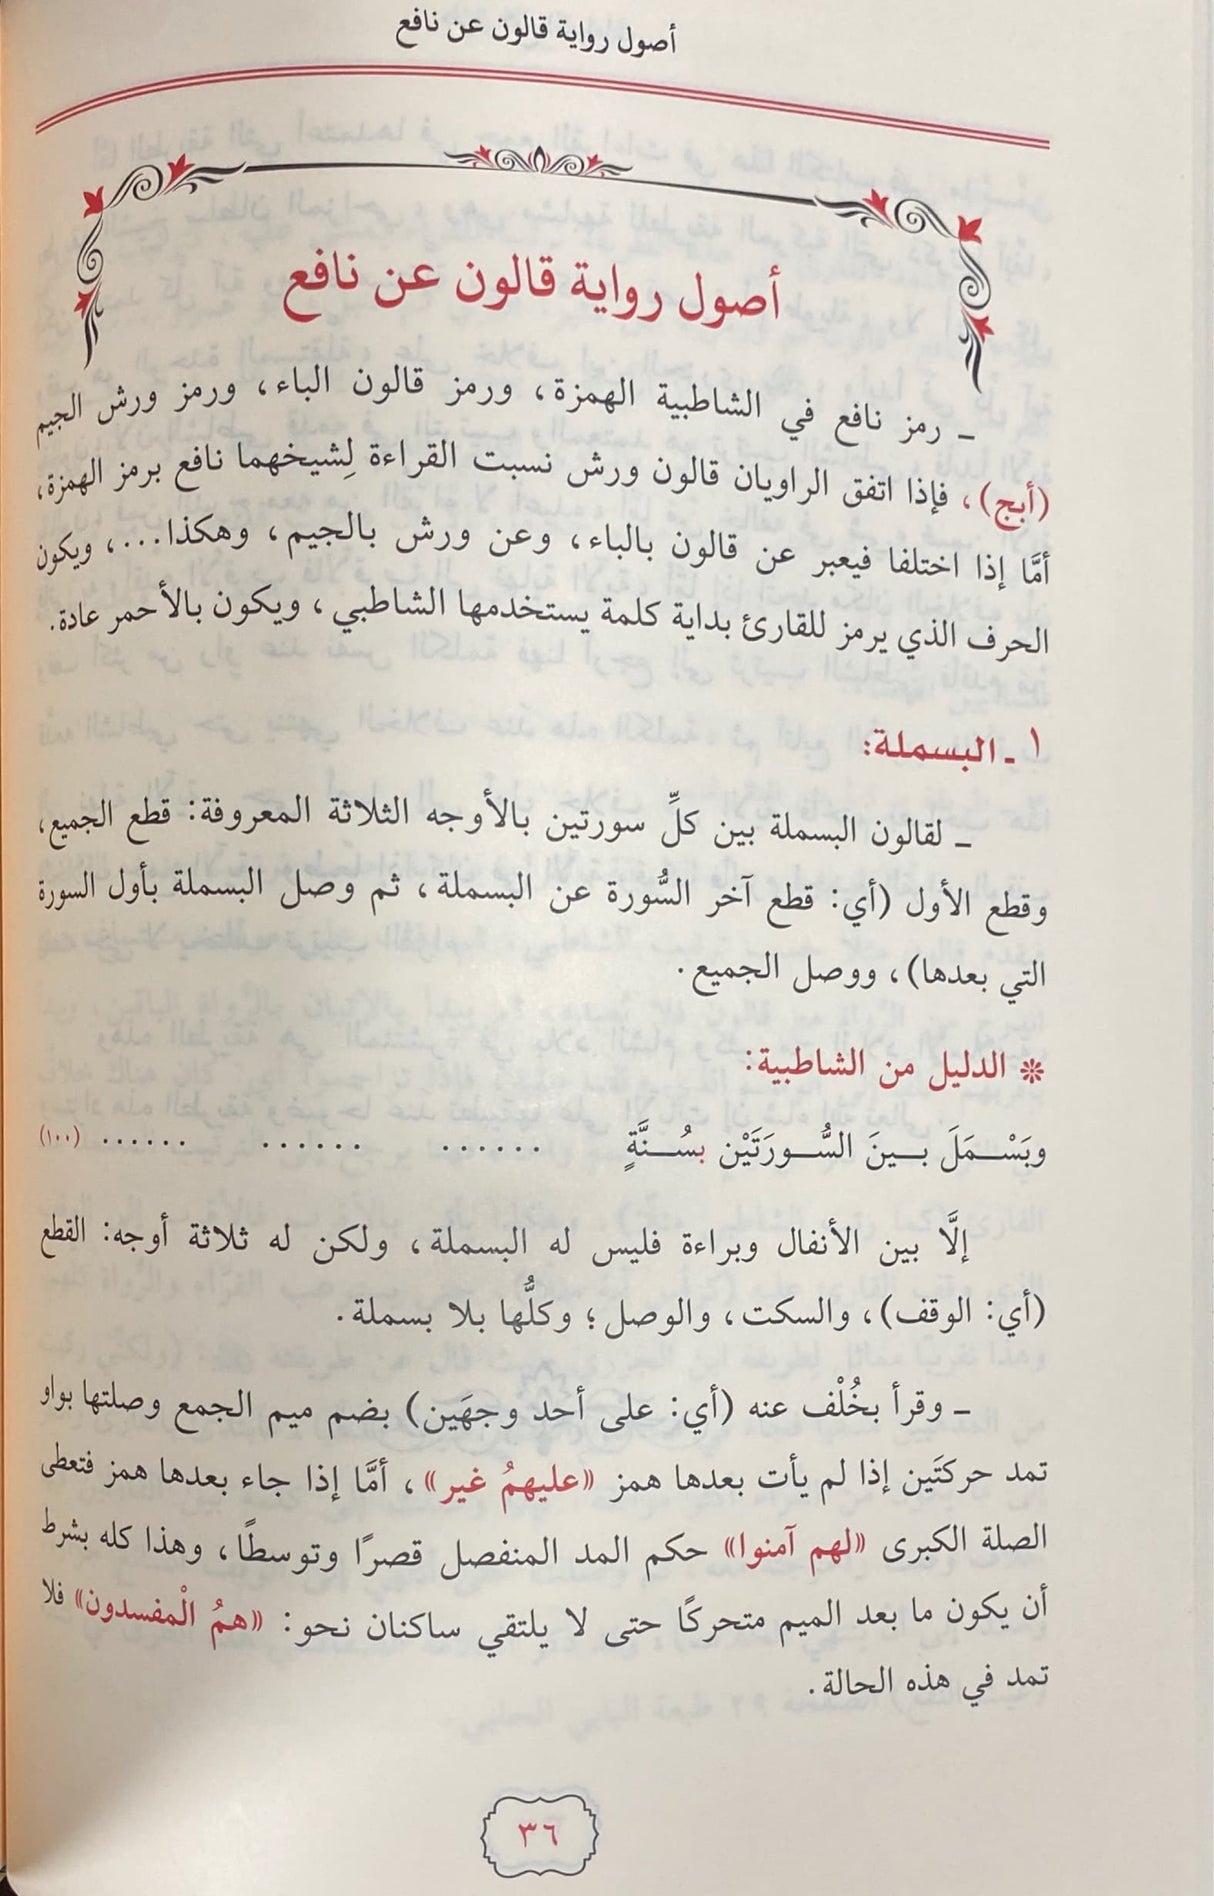 أصول رواية قالون عن نافع
أصول رواية قالون عن نافع
ـ رمز نافع في الشاطبية الهمزة، ورمز قالون الباء، ورمز ورش الجيم
(أبج)، فإذا اتفق الراويان قالون ورش نسبت القراءة لِشيخهما نافع برمز الهمزة،
أمَّا إذا اختلفا فيعبر عن قالون بالباء، وعن ورش بالجيم، وهكذا...، ويكون
الحرف الذي يرمز للقارئ بداية كلمة يستخدمها الشاطبي، ويكون بالأحمر عادة.
١ ـ البسملة:
ـ لقالون البسملة بين كلِّ سورتين بالأوجه الثلاثة المعروفة: قطع الجميع،
وقطع الأول (أي: قطع آخر السُّورة عن البسملة، ثم وصل البسملة بأول السورة
التي بعدها)، ووصل الجميع.
❊ الدليل من الشاطبية:
وبَسْـمَلَ بـينَ السُّـورَتَيْن بسُـنَّةٍ ...... ...... ...... (١٠٠)
إلَّا بين الأنفال وبراءة فليس له البسملة، ولكن له ثلاثة أوجه: القطع
(أي: الوقف)، والسكت، والوصل؛ وكلُّها بلا بسملة.
ـ وقرأ بخُلْف عنه (أي: على أحد وجهَين) بضم ميم الجمع وصلتها بواو
تمد حركتَين إذا لم يأت بعدها همز «عليهمُ غير»، أمَّا إذا جاء بعدها همز فتعطى
الصلة الكبرى «لهم آمنوا» حكم المد المنفصل قصرًا وتوسطًا، وهذا كله بشرط
أن يكون ما بعد الميم متحركًا حتى لا يلتقي ساكنان نحو: «همُ الْمفسدون» فلا
تمد في هذه الحالة.
٣٦